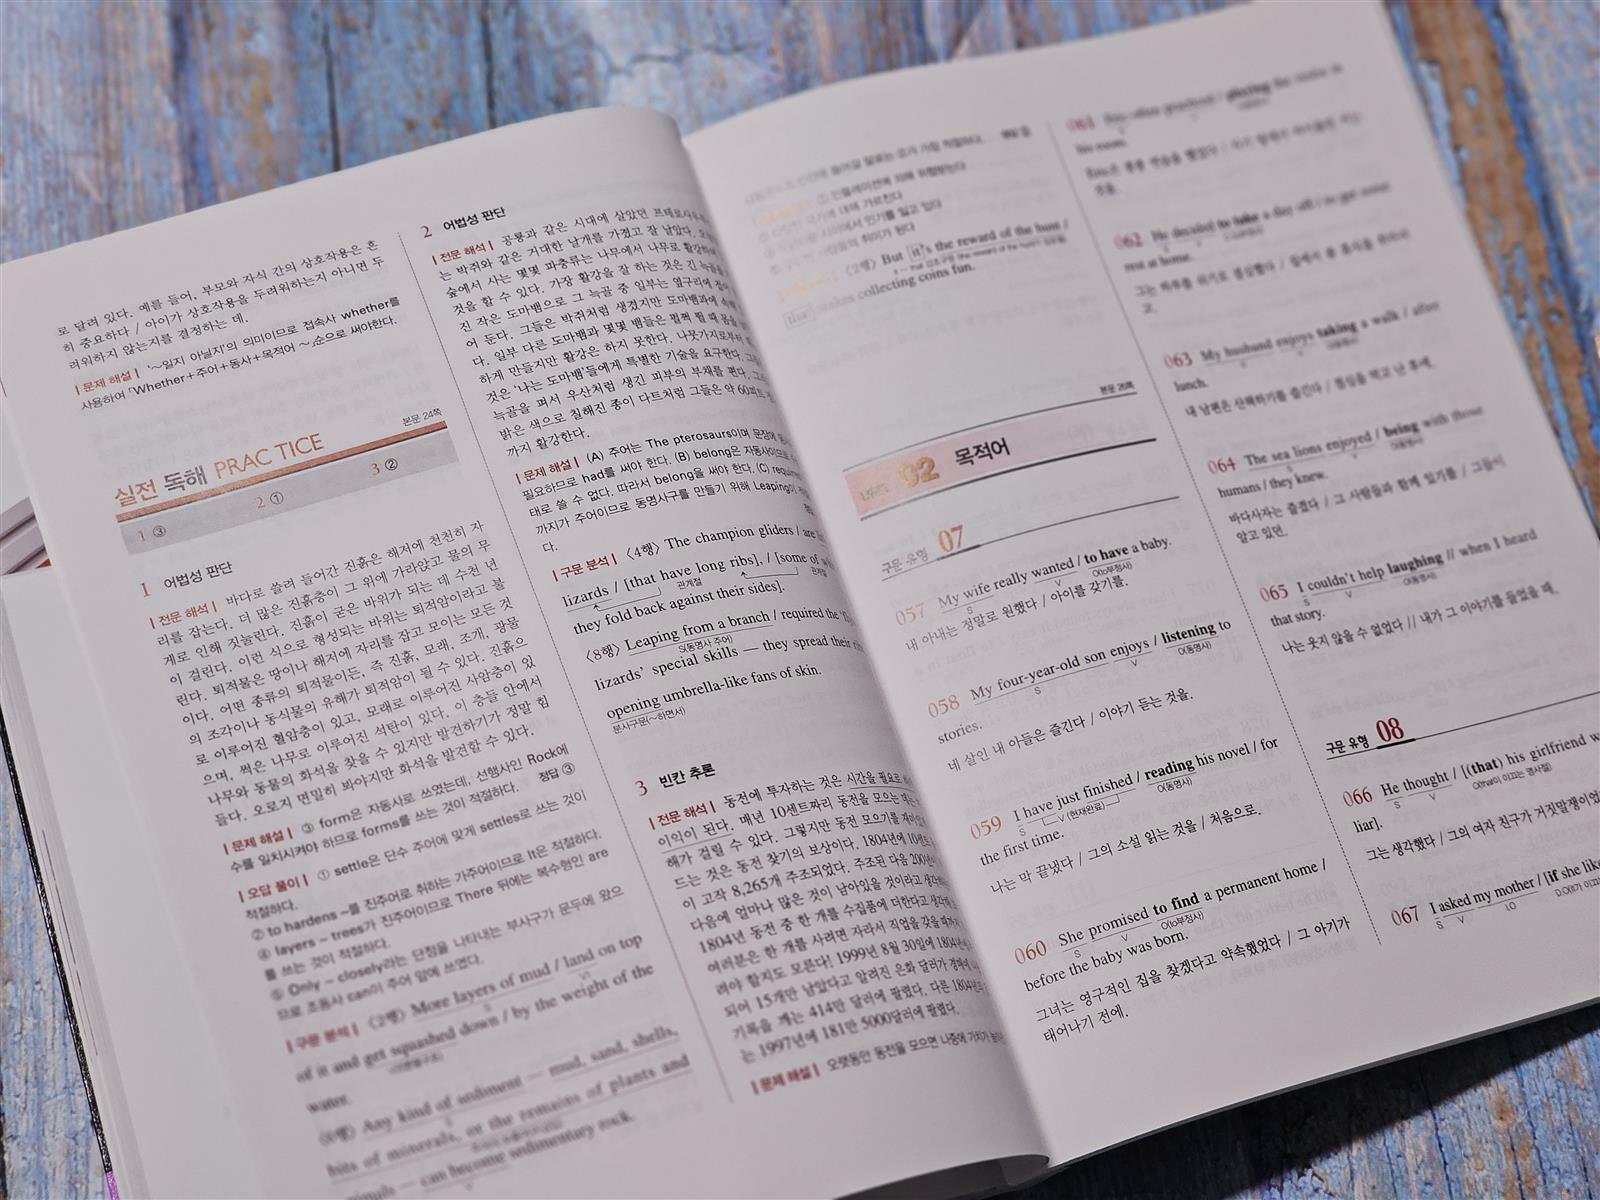 로 달려 있다. 예를 들어, 부모와 자식 간의 상호작용은 흔
히 중요하다 / 아이가 상호작용을 두려워하는지 아니면 두
려워하지 않는지를 결정하는 데.
| 문제 해설 | '~일지 아닐지'의 의미이므로 접속사 whether를
사용하여 「Whether+주어+동사+목적어 ~」순으로 써야한다.
본문 24쪽
실전 독해 PRAC TICE
1 ③ 2 ① 3 ②
1 어법성 판단
| 전문 해석 | 바다로 쓸려 들어간 진흙은 해저에 천천히 자
리를 잡는다. 더 많은 진흙층이 그 위에 가라앉고 물의 무
게로 인해 짓눌린다. 진흙이 굳은 바위가 되는 데 수천 년
이 걸린다. 이런 식으로 형성되는 바위는 퇴적암이라고 불
린다. 퇴적물은 땅이나 해저에 자리를 잡고 모이는 모든 것
이다. 어떤 종류의 퇴적물이든, 즉 진흙, 모래, 조개, 광물
의 조각이나 동식물의 유해가 퇴적암이 될 수 있다. 진흙으
로 이루어진 혈암층이 있고, 모래로 이루어진 사암층이 있
으며, 썩은 나무로 이루어진 석탄이 있다. 이 층들 안에서
나무와 동물의 화석을 찾을 수 있지만 발견하기가 정말 힘
들다. 오로지 면밀히 봐야지만 화석을 발견할 수 있다.
정답 ③
| 문제 해설 | ③ form은 자동사로 쓰였는데, 선행사인 Rock에
수를 일치시켜야 하므로 forms를 쓰는 것이 적절하다.
| 오답 풀이 | ① settle은 단수 주어에 맞게 settles로 쓰는 것이
적절하다.
② to hardens ~를 진주어로 취하는 가주어이므로 It은 적절하다.
④ layers ~ trees가 진주어이므로 There 뒤에는 복수형인 are
를 쓰는 것이 적절하다.
⑤ Only ~ closely라는 단정을 나타내는 부사구가 문두에 왔으
므로 조동사 can이 주어 앞에 쓰였다.
| 구문 분석 | 〈2행〉 More layers of mud / land on top
of it and get squashed down / by the weight of the
water.
〈6행〉 Any kind of sediment — mud, sand, shells,
bits of minerals, or the remains of plants and
can become sedimentary rock.
2 어법성 판단
| 전문 해석 | 공룡과 같은 시대에 살았던
는 박쥐와 같은 거대한 날개를 가졌고 잘 날았다.
숲에서 사는 몇몇 파충류는 나무에서 나무로
것을 할 수 있다. 가장 활강을 잘 하는 것은 긴
진 작은 도마뱀으로 그 늑골 중 일부는 옆구리에
어 둔다. 그들은 박쥐처럼 생겼지만 도마뱀과에
다. 일부 다른 도마뱀과 몇몇 뱀들은 펄쩍 뛸 때 몸을
하게 만들지만 활강은 하지 못한다. 나뭇가지로부터
것은 '나는 도마뱀'들에게 특별한 기술을 요구한다.
늑골을 펴서 우산처럼 생긴 피부의 부채를 편다.
밝은 색으로 칠해진 종이 다트처럼 그들은 약 60피트
까지 활강한다.
| 문제 해설 | (A) 주어는 The pterosaurs이며 문장에
필요하므로 had를 써야 한다. (B) belong은 자동사이므로
태로 쓸 수 없다. 따라서 belong을 써야 한다. (C)
까지가 주어이므로 동명사구를 만들기 위해 Leaping이
다.
| 구문 분석 | 〈4행〉 The champion gliders / are
lizards / [that have long ribs], / [some of
관계절 관계절
they fold back against their sides].
〈8행〉 Leaping from a branch / required the
S(동명사 주어)
lizards' special skills — they spread their
opening umbrella-like fans of skin.
분사구문(~하면서)
3 빈칸 추론
| 전문 해석 | 동전에 투자하는 것은 시간을 필요로
이익이 된다. 매년 10센트짜리 동전을 모으는
해가 걸릴 수 있다. 그렇지만 동전 모으기를
드는 것은 동전 찾기의 보상이다. 1804년에 10센트
이 고작 8,265개 주조되었다. 주조된 다음 200년
다음에 얼마나 많은 것이 남아있을 것이라고
1804년 동전 중 한 개를 수집품에 더한다고
여러분은 한 개를 사려면 자라서 직업을 갖을 때까지
려야 할지도 모른다! 1999년 8월 30일에 1804년
되어 15개만 남았다고 알려진 은화 달러가 경매에
기록을 깨는 414만 달러에 팔렸다. 다른 1804년
는 1997년에 181만 5000달러에 팔렸다.
| 문제 해설 | 오랫동안 동전을 모으면 나중에 가치가
① 인플레이션에 의해 위협받는다
〈2행〉 But it's the reward of the hunt /
makes collecting coins fun.
본문 26쪽
02 목적어
구문 유형 07
057 My wife really wanted / to have a baby.
S V O(to부정사)
내 아내는 정말로 원했다 / 아이를 갖기를.
058 My four-year-old son enjoys / listening to
S V O(동명사)
stories.
네 살인 내 아들은 즐긴다 / 이야기 듣는 것을.
059 I have just finished / reading his novel / for
S V (현재완료) O(동명사)
the first time.
나는 막 끝냈다 / 그의 소설 읽는 것을 / 처음으로.
060 She promised to find a permanent home /
S V O(to부정사)
before the baby was born.
그녀는 영구적인 집을 찾겠다고 약속했었다 / 그 아기가
태어나기 전에.
his room.
것을.
062 He decided to take a day off / to get some
rest at home.
고.
063 My husband enjoys taking a walk / after
S V O(동명사)
lunch.
내 남편은 산책하기를 즐긴다 / 점심을 먹고 난 후에.
064 The sea lions enjoyed / being with those
S V O(동명사)
humans / they knew.
바다사자는 즐겼다 / 그 사람들과 함께 있기를 / 그들이
알고 있던.
065 I couldn't help laughing // when I heard
S V O(동명사)
that story.
나는 웃지 않을 수 없었다 // 내가 그 이야기를 들었을 때.
구문 유형 08
066 He thought / [(that) his girlfriend
S V O(that이 이끄는 명사절)
liar].
그는 생각했다 / 그의 여자 친구가 거짓말쟁이
067 I asked my mother / [if she
S V I.O